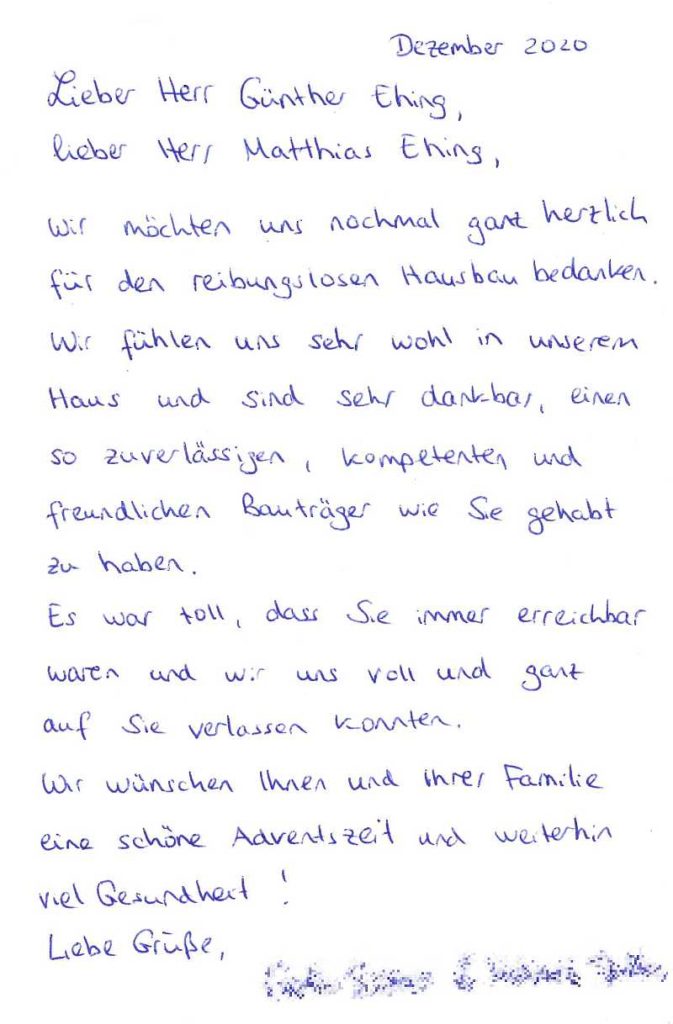 Dezember 2020
Lieber Herr Günther Ehing,
lieber Herr Matthias Ehing,
wir möchten uns nochmal ganz herzlich
für den reibungslosen Hausbau bedanken.
Wir fühlen uns sehr wohl in unserem
Haus und sind sehr dankbar, einen
so zuverlässigen, kompetenten und
freundlichen Bauträger wie Sie gehabt
zu haben.
Es war toll, dass Sie immer erreichbar
waren und wir uns voll und ganz
auf Sie verlassen konnten.
Wir wünschen Ihnen und ihrer Familie
eine schöne Adventszeit und weiterhin
viel Gesundheit!
Liebe Grüße,